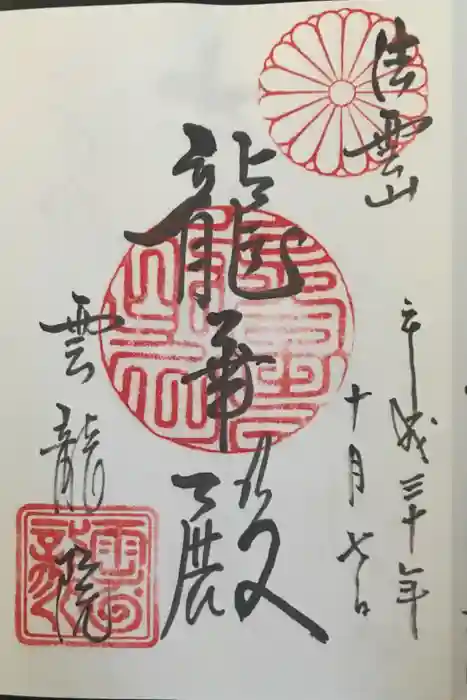 法雲山
平成三十年
十月七日
龍華殿
雲龍院